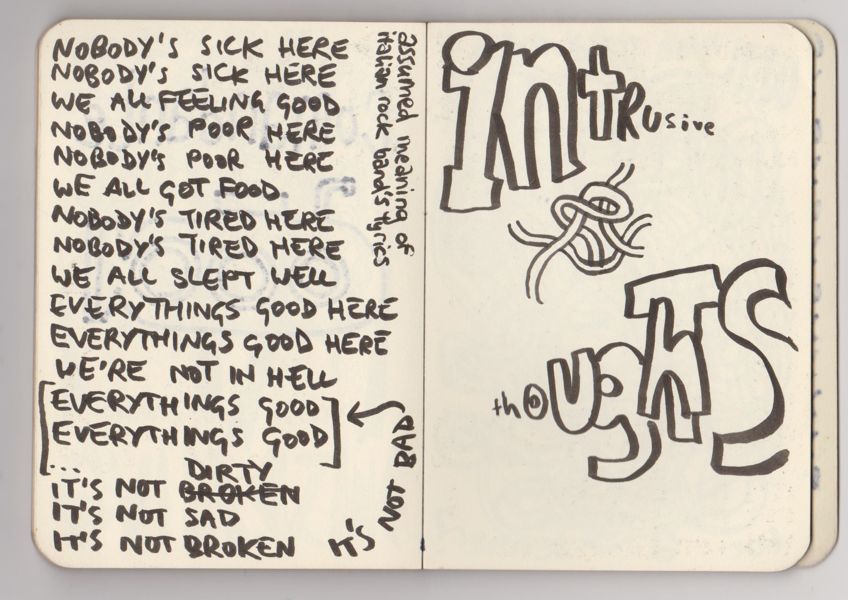 NOBODY'S SICK HERE
NOBODY'S SICK HERE
WE ALL FEELING GOOD
NOBODY'S POOR HERE
NOBODY'S POOR HERE
WE ALL GOT FOOD
NOBODY'S TIRED HERE
NOBODY'S TIRED HERE
WE ALL SLEPT WELL
EVERYTHINGS GOOD HERE
EVERYTHINGS GOOD HERE
WE'RE NOT IN HELL
[EVERYTHINGS GOOD
EVERYTHINGS GOOD]
...
DIRTY
IT'S NOT BROKEN
IT'S NOT SAD
IT'S NOT BROKEN
IT'S NOT BAD
assumed meaning of
italian rock band's lyrics
iNtRusive
thoughTS